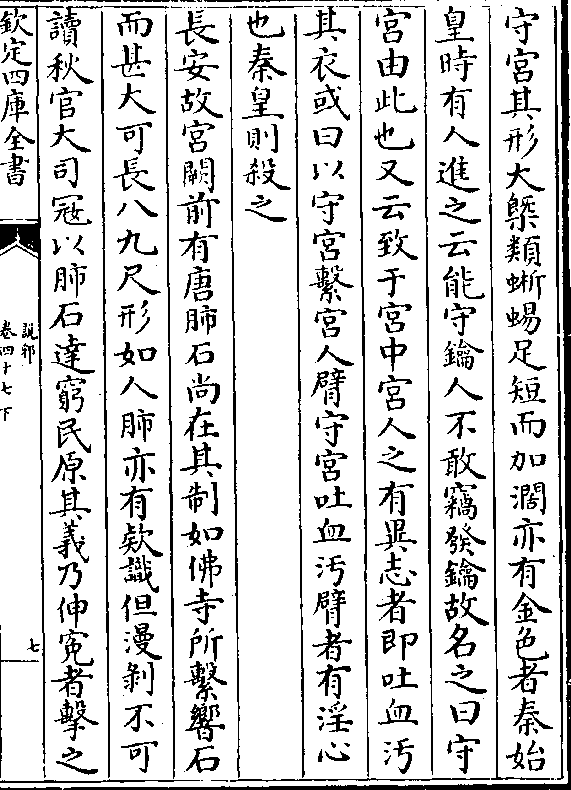 守宫其形大槩類蜥蜴足短而加濶亦有金色者秦始
皇時有人進之云能守鑰人不敢竊發鑰故名之曰守
宫由此也又云致于宫中宫人之有異志者即吐血汚
其衣或曰以守宫繫宫人臂守宫吐血汚臂者有淫心
也秦皇則殺之
長安故宫闕前有唐肺石尚在其制如佛寺所繫響石
而甚大可長八九尺形如人肺亦有欵識但漫剝不可
讀秋官大司冦以肺石達窮民原其義乃伸寃者擊之
欽定四庫全書
説郛
卷四十七下
七